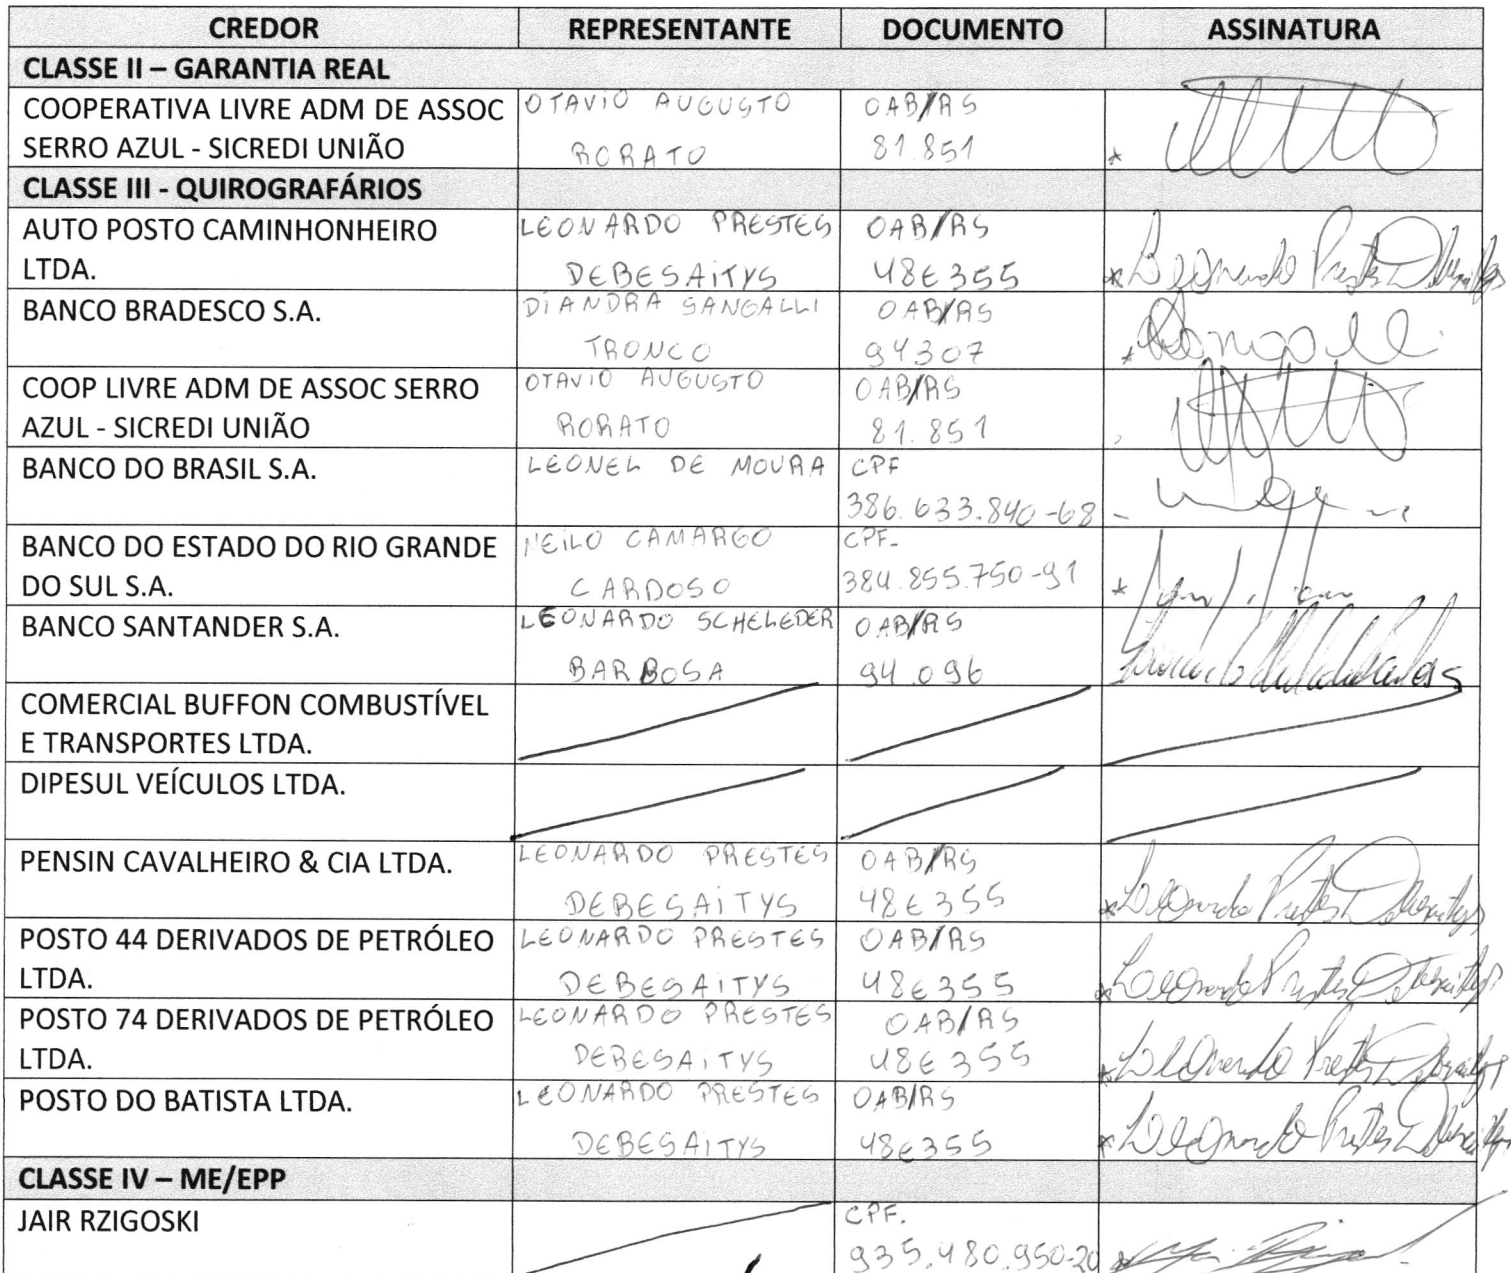 CREDOR REPRESENTANTE DOCUMENTO ASSINATURA
CLASSE II – GARANTIA REAL
COOPERATIVA LIVRE ADM DE ASSOC OTAVIO AUGUSTO OAB/RS
SERRO AZUL - SICREDI UNIÃO RORATO 81.851
CLASSE III - QUIROGRAFÁRIOS
AUTO POSTO CAMINHONHEIRO LEONARDO PRESTES OAB/RS
LTDA. DEBESAITYS 48E355 Leonardo Prestes Debesaitys
BANCO BRADESCO S.A. DIANDRA SANGALLI OAB/RS
TRONCO 94307 Sangalli
COOP LIVRE ADM DE ASSOC SERRO OTAVIO AUGUSTO OAB/RS
AZUL - SICREDI UNIÃO RORATO 81.851
BANCO DO BRASIL S.A. LEONEL DE MOURA CPF
386.633.840-68
BANCO DO ESTADO DO RIO GRANDE NEILO CAMARGO CPF-
DO SUL S.A. CARDOSO 384.855.750-91
BANCO SANTANDER S.A. LEONARDO SCHELEDER OAB/RS
BARBOSA 94.096
COMERCIAL BUFFON COMBUSTÍVEL
E TRANSPORTES LTDA.
DIPESUL VEÍCULOS LTDA.
PENSIN CAVALHEIRO & CIA LTDA. LEONARDO PRESTES OAB/RS
DEBESAITYS 48E355 Leonardo Prestes Debesaitys
POSTO 44 DERIVADOS DE PETRÓLEO LEONARDO PRESTES OAB/RS
LTDA. DEBESAITYS 48E355 Leonardo Prestes Debesaitys
POSTO 74 DERIVADOS DE PETRÓLEO LEONARDO PRESTES OAB/RS
LTDA. DEBESAITYS 48E355 Leonardo Prestes Debesaitys
POSTO DO BATISTA LTDA. LEONARDO PRESTES OAB/RS
DEBESAITYS 48E355 Leonardo Prestes Debesaitys
CLASSE IV – ME/EPP
JAIR RZIGOSKI CPF.
935.480.950-20